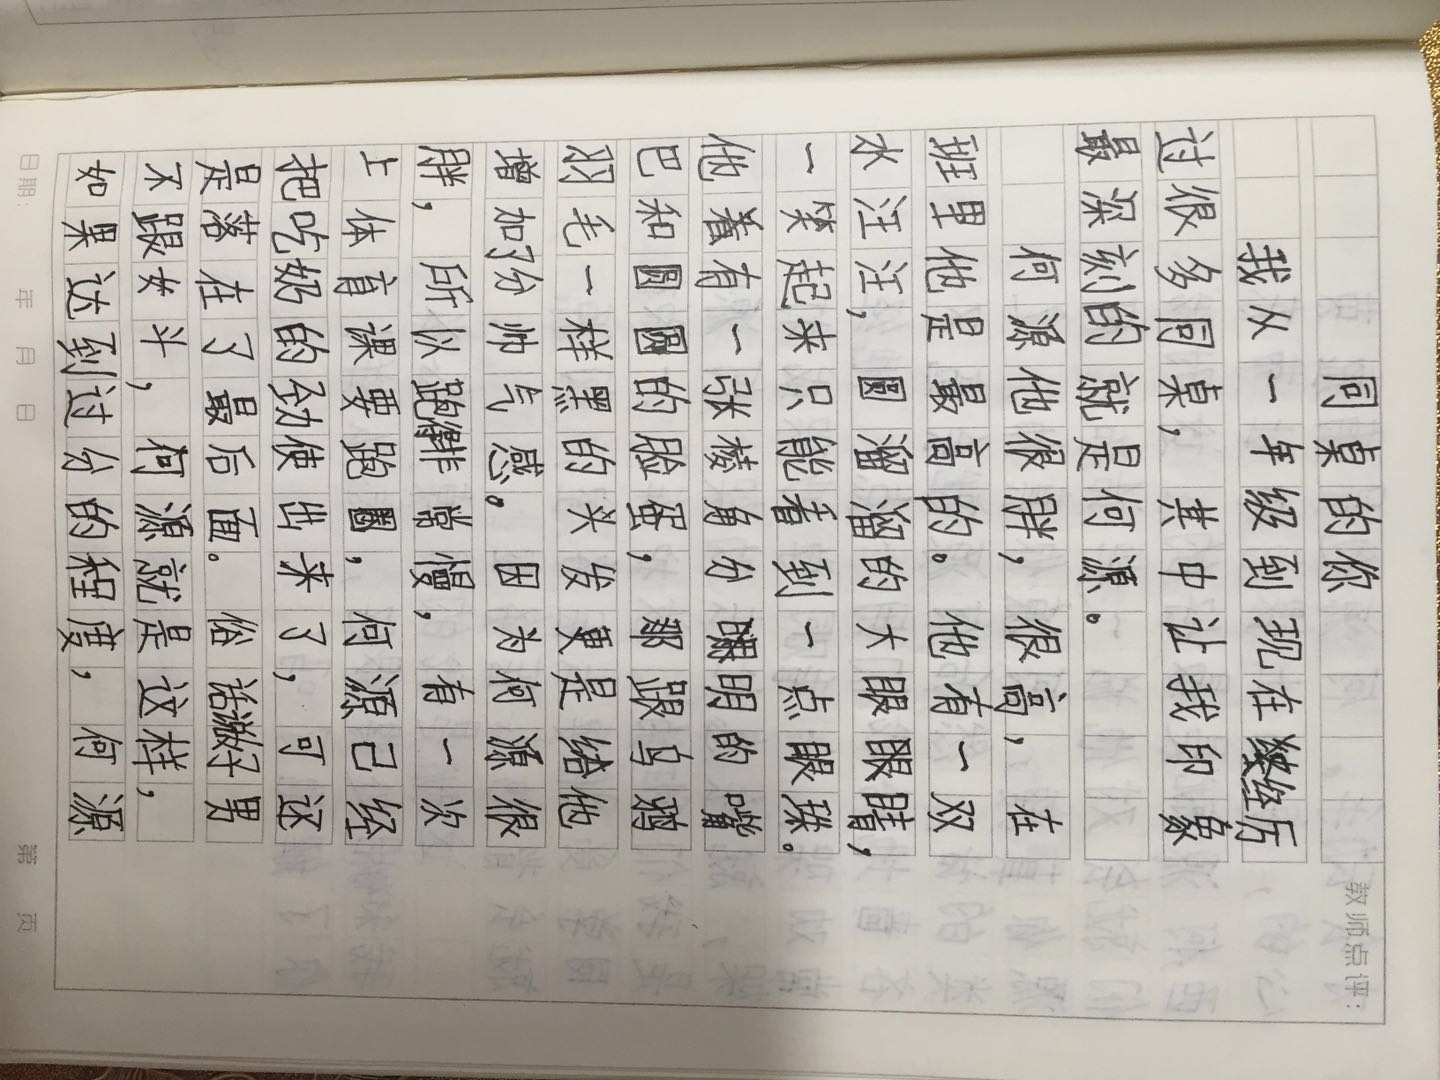 同桌的你
我从一年级到现在经历
过很多同桌，其中让我印象
最深刻的就是何源。
何源他很胖，很高，在
班里他是最高的。他有一双
水汪汪，圆溜溜的大眼眼睛，
一笑起来只能看到一点眼珠。
他着有一张棱角分明的嘴
巴和圆圆的脸蛋，那跟乌鸦
羽毛一样黑的头发更是给他
增加了份帅气感。因为何源很
胖，所以跑非常慢，有一次
上体育课要跑圈，何源己经
把吃奶的劲使出来了，可还
是落在了最后面。俗话说好男
不跟女斗，何源就是这样，
如果达到过分的程度，何源
教师点评：
日期： 年 月 日 第 页